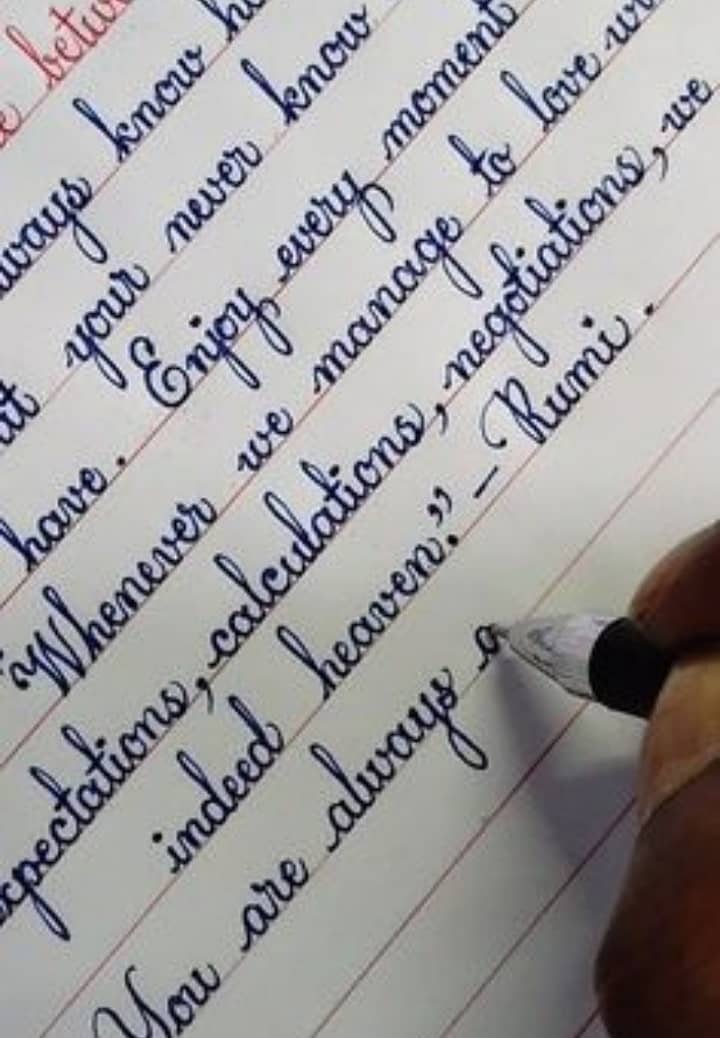 betwe
ways know h
ut your never know
have. Enjoy every moment
"Whenever we manage to love wi
xpectations, calculations, negotiations, we
indeed heaven." – Rumi.
You are always a